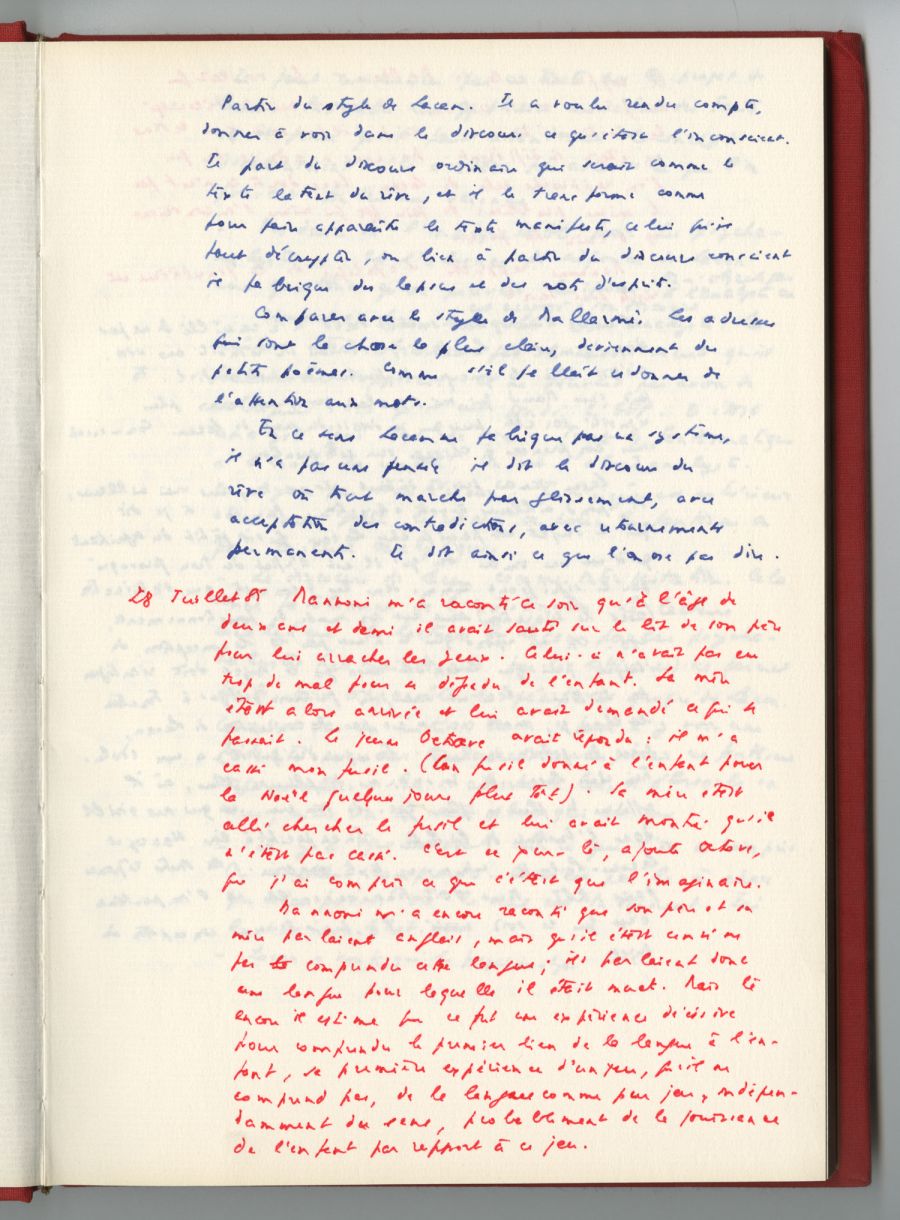 Partir du style de Lacan. Il a voulu rendre compte,
donner à voir dans le discours ce qu'était l'inconscient.
Il part du discours ordinaire qui serait comme le
texte latent du rêve, et il le transforme comme
pour faire apparaître le texte manifeste, celui
faut décrypter, ou bien à partir du discours conscient
il fabrique des lapsus et des mots d'esprit.
Comparer avec le style de Mallarmé. Les adresses
qui sont la chose la plus claire, deviennent de
petits poèmes. Comme s'il fallait redonner de
l'attention aux mots.
En ce sens Lacan ne fabrique pas un système,
il n'a pas une pensée il dit le discours du
rêve où tout marche par glissement, avec
acceptation des contradictions, avec retournements
permanents. Il dit ainsi ce que l'on ose pas dire.
28 Juillet 85 Mannoni m'a raconté ce soir qu'à l'âge de
deux ans et demi il avait sauté sur le lit de son père
pour lui arracher les yeux. Celui-ci n'avait pas eu
trop de mal pour se défendre de l'enfant. Sa mère
était alors arrivée et lui avait demandé ce qui se
passait. Le jeune Octave avait répondu : il m'a
cassé mon fusil. (Un fusil donné à l'enfant pour
la Noël quelques jours plus tôt). Sa mère était
allé chercher le fusil et lui avait montré qu'il
n'était pas cassé. C'est ce jour là, ajoute Octave,
que j'ai compris ce que c'était que l'imaginaire.
Mannoni m'a encore raconté que son père et sa
mère parlaient anglais, mais qu'il était censé ne
pas comprendre cette langue ; ils parlaient donc
une langue pour laquelle il était muet. Mais là
encore il estime que ce fut une expérience décisive
pour comprendre le premier lien de la langue à l'en-
fant, sa première expérience d'un jeu, qu'il ne
comprend pas, de la langue comme pur jeu, indépen-
damment du sens, probablement de la jouissance
de l'enfant par rapport à ce jeu.